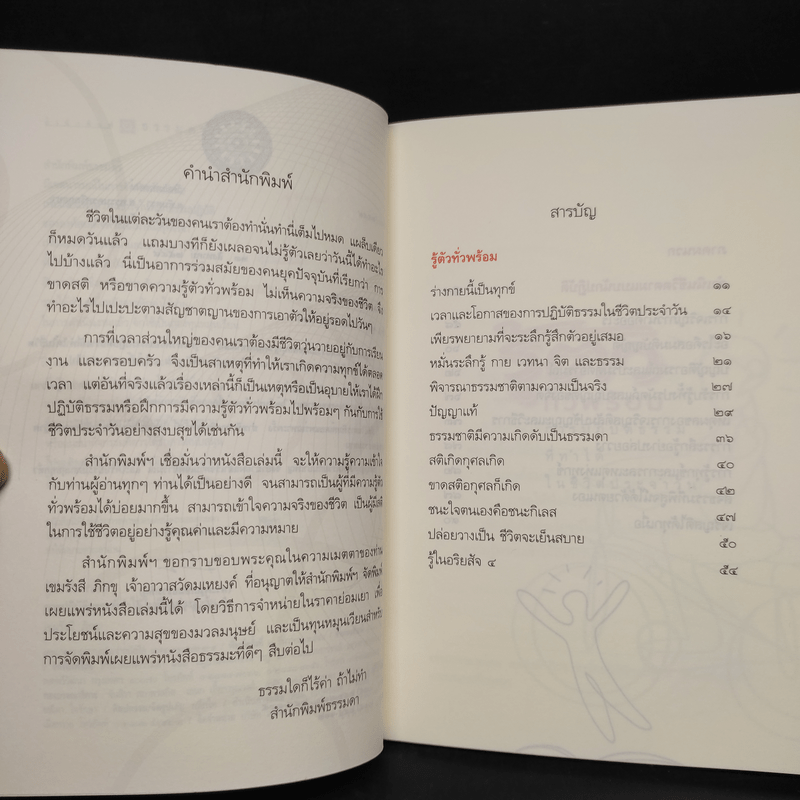 คำนำสำนักพิมพ์
ชีวิตในแต่ละวันของคนเราต้องทำนั่นทำนี่เต็มไปหมด แผล็บเดียว
ก็หมดวันแล้ว แถมบางทีก็ยังเผลอจนไม่รู้ตัวเลยว่าวันนี้ได้ทำอะไร
ไปบ้างแล้ว นี่เป็นอาการร่วมสมัยของคนยุคปัจจุบันที่เรียกว่า การ
ขาดสติ หรือขาดความรู้ตัวทั่วพร้อม ไม่เห็นความจริงของชีวิต จึง
ทำอะไรไปเปะปะตามสัญชาตญาณของการเอาตัวให้อยู่รอดไปวันๆ
การที่เวลาส่วนใหญ่ของคนเราต้องมีชีวิตวุ่นวายอยู่กับการเรียน
งาน และครอบครัว จึงเป็นสาเหตุที่ทำให้เราเกิดความทุกข์ได้ตลอด
เวลา แต่อันที่จริงแล้วเรื่องเหล่านี้ก็เป็นเหตุหรือเป็นอุบายให้เราได้ฝึก
ปฏิบัติธรรมหรือฝึกการมีความรู้ตัวทั่วพร้อมไปพร้อมๆ กันกับการใช้
ชีวิตประจำวันอย่างสงบสุขได้เช่นกัน
สำนักพิมพ์ฯ เชื่อมั่นว่าหนังสือเล่มนี้ จะให้ความรู้ความเข้าใจ
กับท่านผู้อ่านทุกๆ ท่านได้เป็นอย่างดี จนสามารถเป็นผู้ที่มีความรู้ตัว
ทั่วพร้อมได้บ่อยมากขึ้น สามารถเข้าใจความจริงของชีวิต เป็นผู้มีสติ
ในการใช้ชีวิตอยู่อย่างรู้คุณค่าและมีความหมาย
สำนักพิมพ์ฯ ขอกราบขอบพระคุณในความเมตตาของท่าน
เขมรังสี ภิกขุ เจ้าอาวาสวัดมเหยงค์ ที่อนุญาตให้สำนักพิมพ์ฯ จัดพิมพ์
เผยแพร่หนังสือเล่มนี้ได้ โดยวิธีการจำหน่ายในราคาย่อมเยา เพื่อ
ประโยชน์และความสุขของมวลมนุษย์ และเป็นทุนหมุนเวียนสำหรับ
การจัดพิมพ์เผยแพร่หนังสือธรรมะที่ดีๆ สืบต่อไป
ธรรมใดก็ไร้ค่า ถ้าไม่ทำ
สำนักพิมพ์ธรรมดา
สารบัญ
รู้ตัวทั่วพร้อม
ร่างกายนี้เป็นทุกข์ ๑๑
เวลาและโอกาสของการปฏิบัติธรรมในชีวิตประจำวัน ๑๔
เพียรพยายามที่จะระลึกรู้สึกตัวอยู่เสมอ ๑๖
หมั่นระลึกรู้ กาย เวทนา จิต และธรรม ๒๑
พิจารณาธรรมชาติตามความเป็นจริง ๒๗
ปัญญาแท้ ๒๙
ธรรมชาติมีความเกิดดับเป็นธรรมดา ๓๖
สติเกิดกุศลเกิด ๔๐
ขาดสติอกุศลก็เกิด ๔๒
ชนะใจตนเองคือชนะกิเลส ๔๗
ปล่อยวางเป็น ชีวิตจะเย็นสบาย ๕๐
รู้ในอริยสัจ ๔ ๕๔